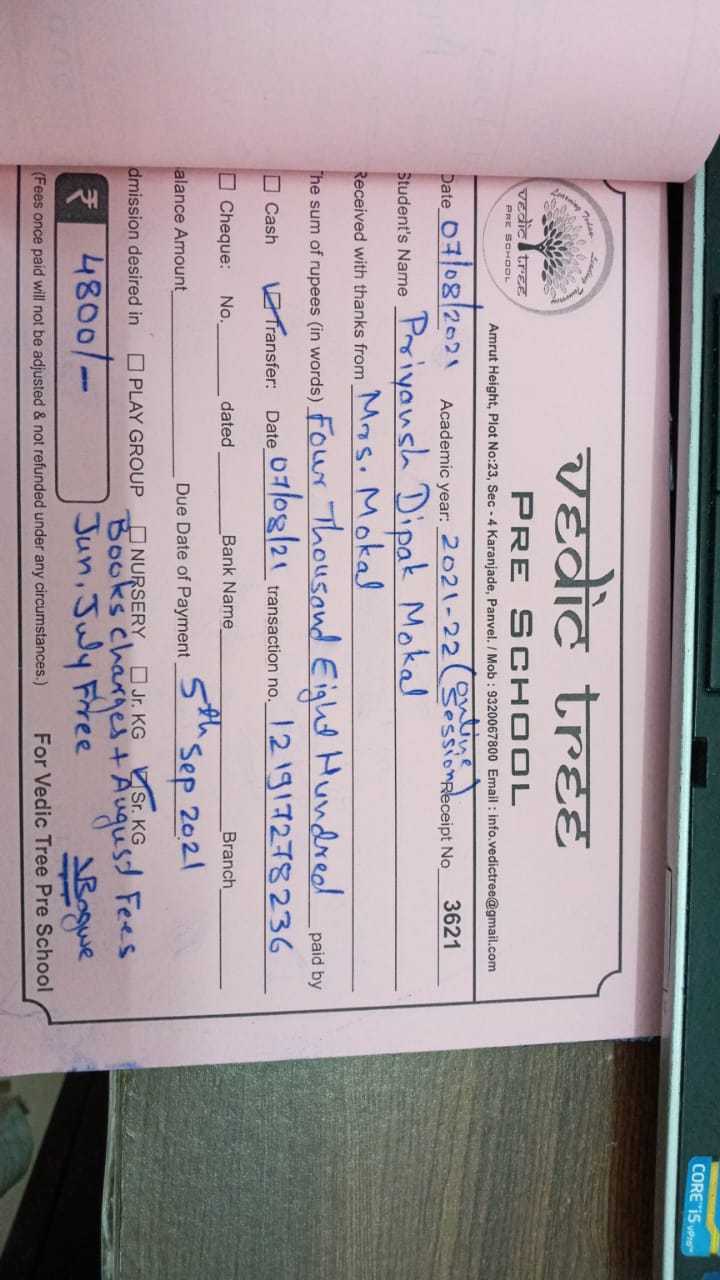 vedic tree
PRE SCHOOL
Learning Today.. Leading Tomorrow
vedic tree
PRE SCHOOL
Amrut Height, Plot No:23, Sec - 4 Karanjade, Panvel. / Mob : 9320067800 Email : info.vedictree@gmail.com
Date 07/08/2021 Academic year: 2021-22 (online session) Receipt No 3621
Student's Name Priyansh Dipak Mokal
Received with thanks from Mrs. Mokal
The sum of rupees (in words) Four Thousand Eight Hundred paid by
Cash Transfer: Date 07/08/21 transaction no. 121917278236
Cheque: No. dated Bank Name Branch
alance Amount Due Date of Payment 5th Sep 2021
dmission desired in PLAY GROUP NURSERY Jr. KG Sr. KG
₹ 4800/- Books Charges + August Fees
Jun, July Free
(Fees once paid will not be adjusted & not refunded under any circumstances.) For Vedic Tree Pre School
CORE i5 vPro